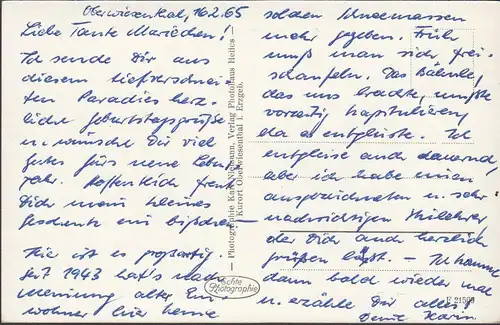 Oberwiesenthal, 16.2.65
Liebe Tante Mariechen!
Ich sende Dir aus
diesem tiefverschnei-
ten Paradies herz-
liche Geburtstagsgrüße
u. wünsche Dir viel
gutes fürs neue Lebens-
jahr. Hoffentlich freut
Dich mein kleines
Geschenk ein bißchen.
Hier ist es großartig.
Seit 1943 hat's nach
Meinung alter Ein-
wohner hier keine
solchen Schneemassen
mehr gegeben. Früh
muß man sich frei-
schaufeln. Das Bähnle,
das uns brachte, mußte
vorzeitig kapitulieren,
da es entgleiste. Ich
entgleise auch dauernd,
aber ich habe einen
ausgezeichneten u. sehr
nachsichtigen Skilehrer
der Dich auch herzlich
grüßen läßt. — Ich komme
dann bald wieder mal
u. erzähle Dir alles!
Deine Karin
Photographie Karl Nitzmann, Verlag Photohaus Helios
Kurort Oberwiesenthal i. Erzgeb.
Echte
Photographie